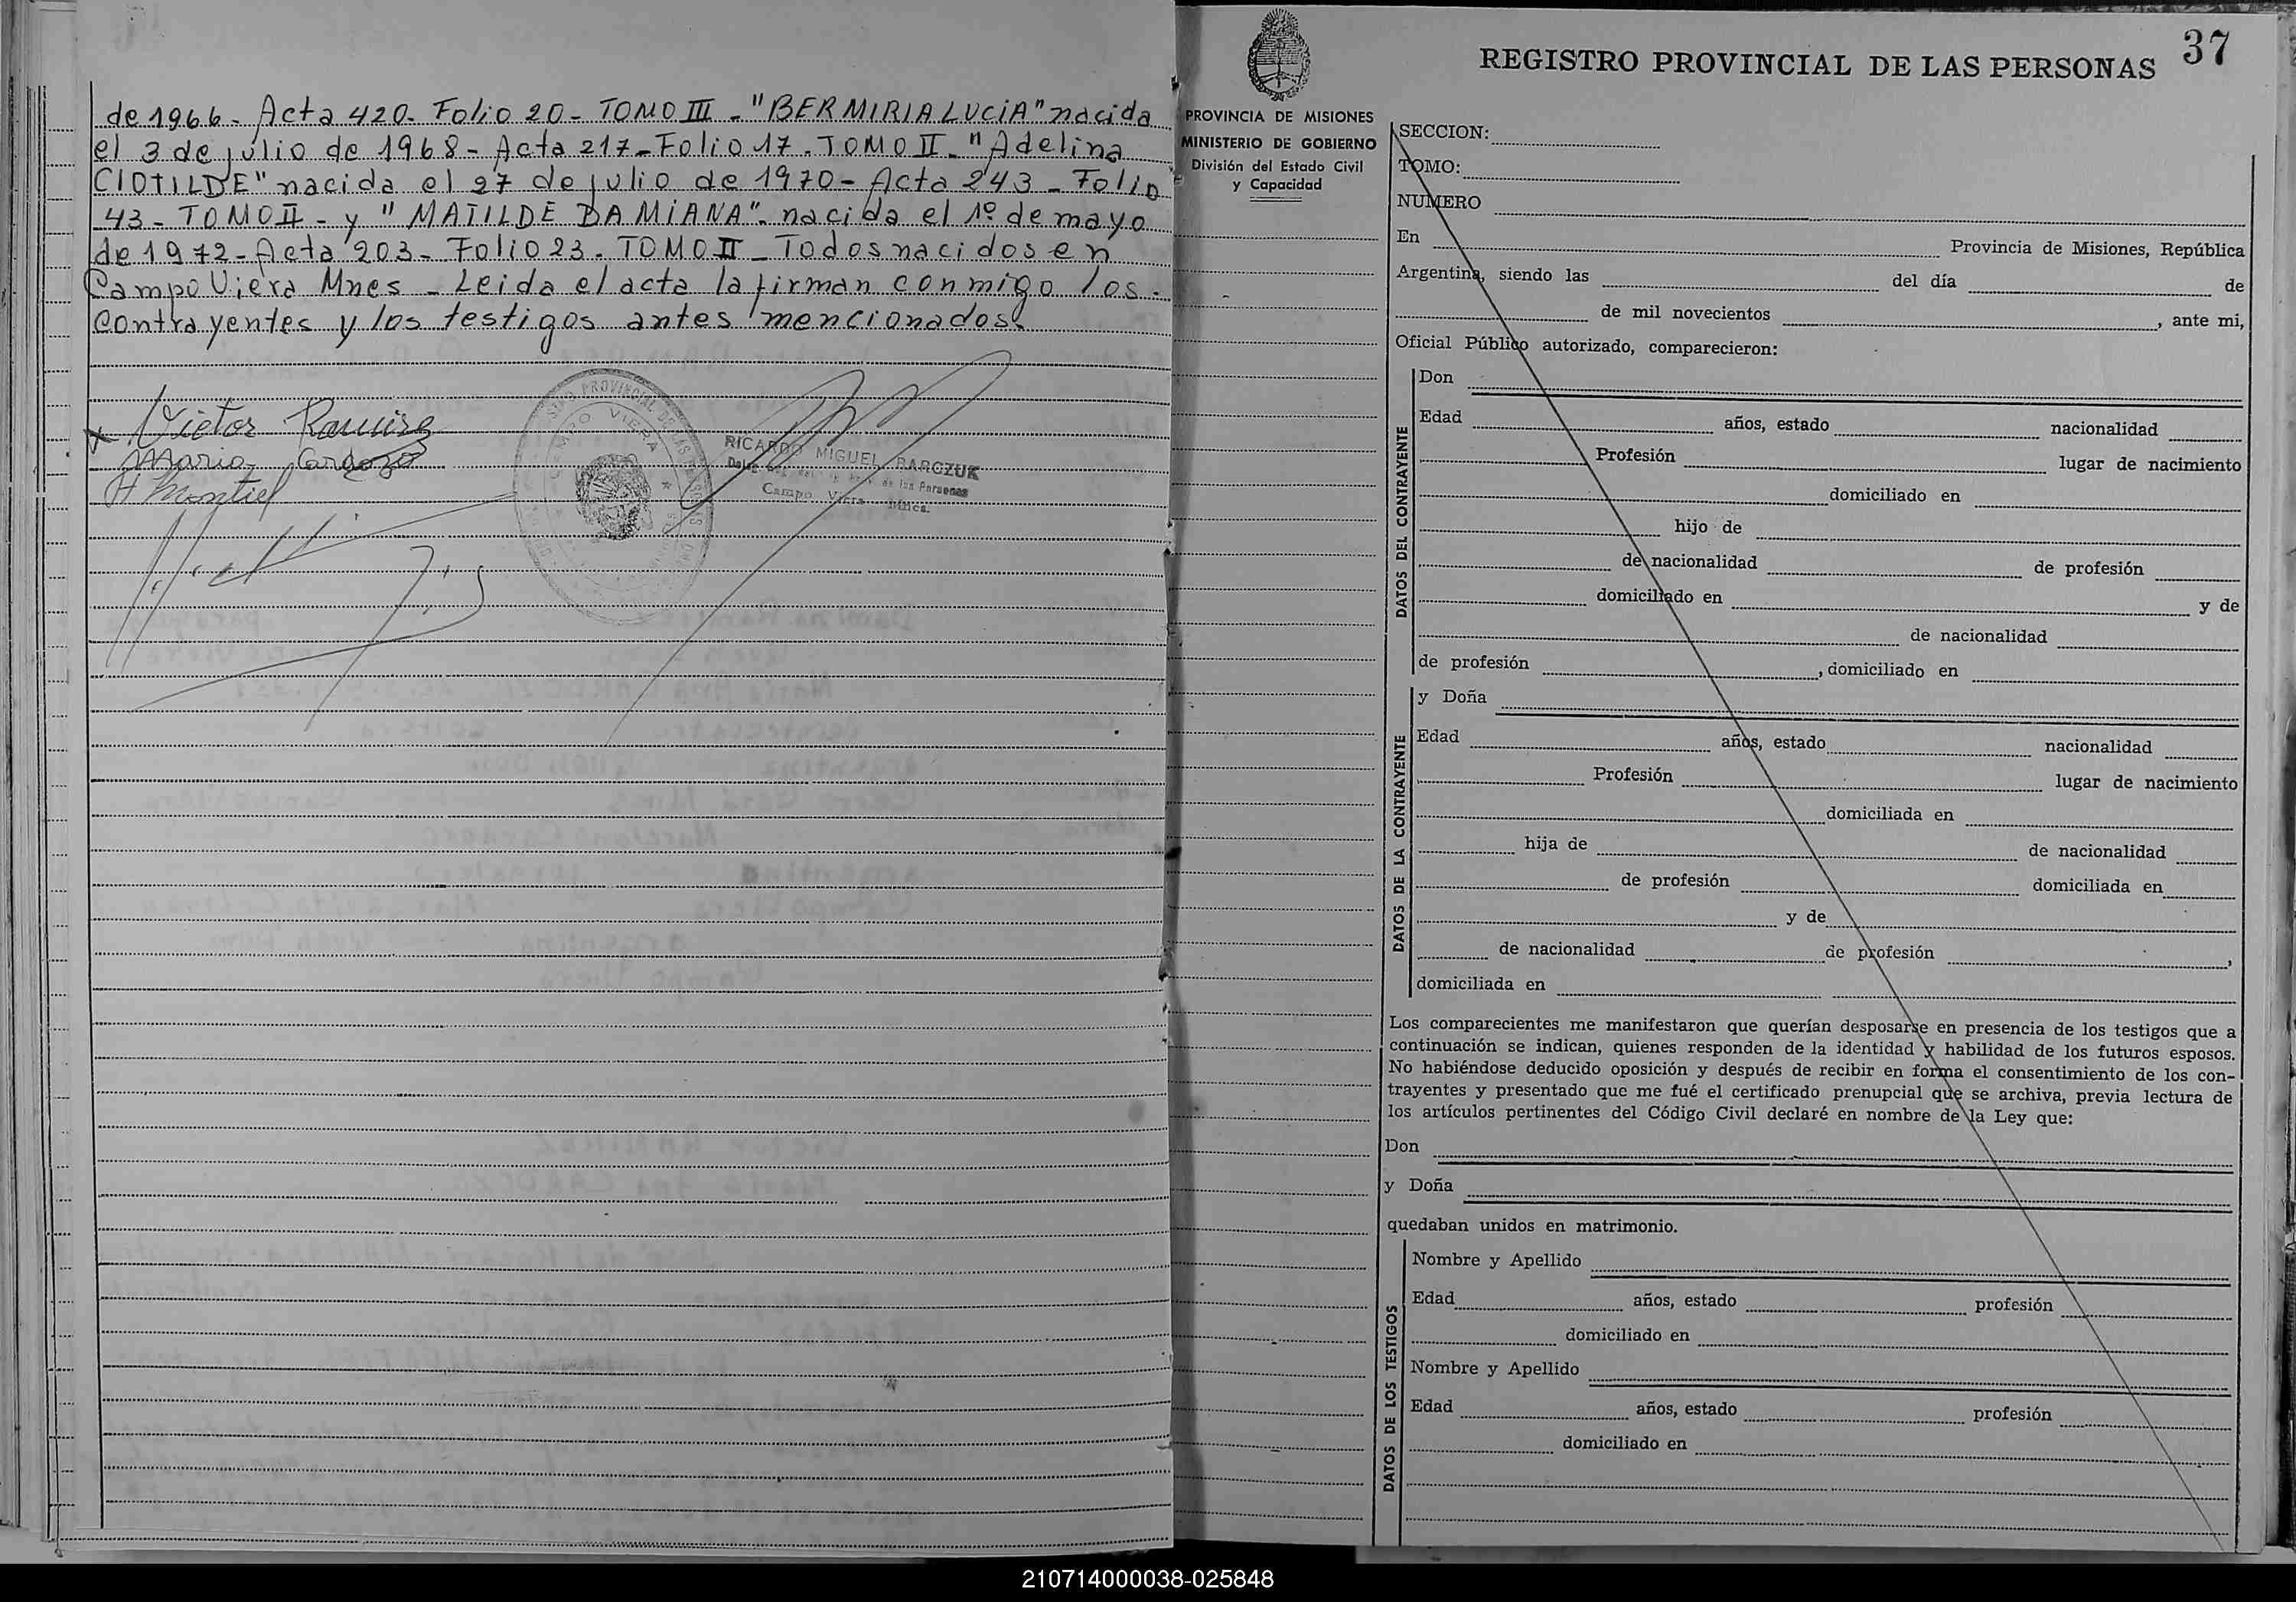 de 1966- Acta 420- Folio 20- TOMO III - "BERMIRIA LUCIA" nacida
el 3 de julio de 1968- Acta 217- Folio 17. TOMO II- "Adelina
CLOTILDE" nacida el 27 de julio de 1970- Acta 243- Folio
43- TOMO II- y "MATILDE DAMIANA"- nacida el 1º de mayo
de 1972- Acta 203- Folio 23- TOMO II- Todos nacidos en
Campo Viera Mnes- Leida el acta la firman conmigo los-
contrayentes y los testigos antes mencionados.
Victor Ramirez
Maria Cardozo
H Montiel
PROVINCIAL DE LAS PERSONAS
CAMPO VIERA
RICARDO MIGUEL BARCZUK
de las Personas
Campo Viera Mnes.
37
REGISTRO PROVINCIAL DE LAS PERSONAS
PROVINCIA DE MISIONES
MINISTERIO DE GOBIERNO
División del Estado Civil
y Capacidad
SECCION:
TOMO:
NUMERO
En Provincia de Misiones, República
Argentina, siendo las del día de
de mil novecientos , ante mi,
Oficial Público autorizado, comparecieron:
DATOS DEL CONTRAYENTE
Don
Edad años, estado nacionalidad
Profesión lugar de nacimiento
domiciliado en
hijo de
de nacionalidad de profesión
domiciliado en y de
de nacionalidad
de profesión , domiciliado en
DATOS DE LA CONTRAYENTE
y Doña
Edad años, estado nacionalidad
Profesión lugar de nacimiento
domiciliada en
hija de de nacionalidad
de profesión domiciliada en
y de
de nacionalidad de profesión ,
domiciliada en
Los comparecientes me manifestaron que querían desposarse en presencia de los testigos que a
continuación se indican, quienes responden de la identidad y habilidad de los futuros esposos.
No habiéndose deducido oposición y después de recibir en forma el consentimiento de los con-
trayentes y presentado que me fué el certificado prenupcial que se archiva, previa lectura de
los artículos pertinentes del Código Civil declaré en nombre de la Ley que:
Don
y Doña
quedaban unidos en matrimonio.
DATOS DE LOS TESTIGOS
Nombre y Apellido
Edad años, estado profesión
domiciliado en
Nombre y Apellido
Edad años, estado profesión
domiciliado en
210714000038-025848